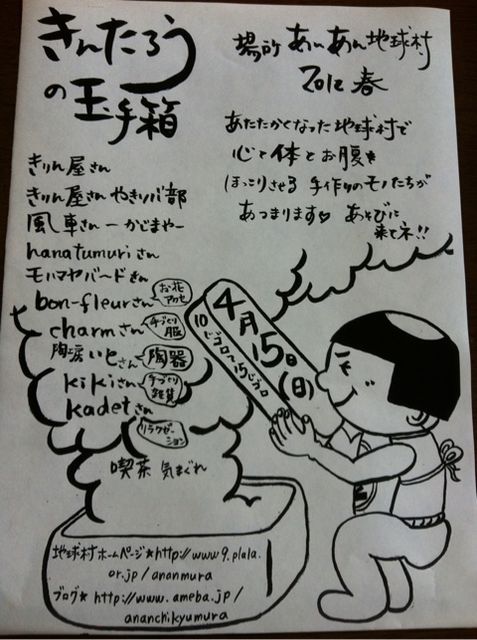 きんたろう
の玉手箱
場所 あぃあん地球村
2012 春
あたたかくなった地球村で
心と体とお腹を
ほっこりさせる 手作りのモノたちが
あつまります♡ あそびに
来てネ!!
きりん屋さん
きりん屋さん やきソバ部
風車さん ーかじまやー
hanatumuriさん
モハマヤバードさん
bon-fleurさん お花アクセ
charmさん 手づくり服
陶工房 いとさん 陶器
kikiさん 手づくり雑貨
kadetさん
リラクゼーション
喫茶 気まぐれ
4月15日(日)
10じゴロ〜15じゴロ
地球村ホームページ★http://www9.plala.
or.jp/ananmura
ブログ★ http://www.ameba.jp/
ananchikyumura